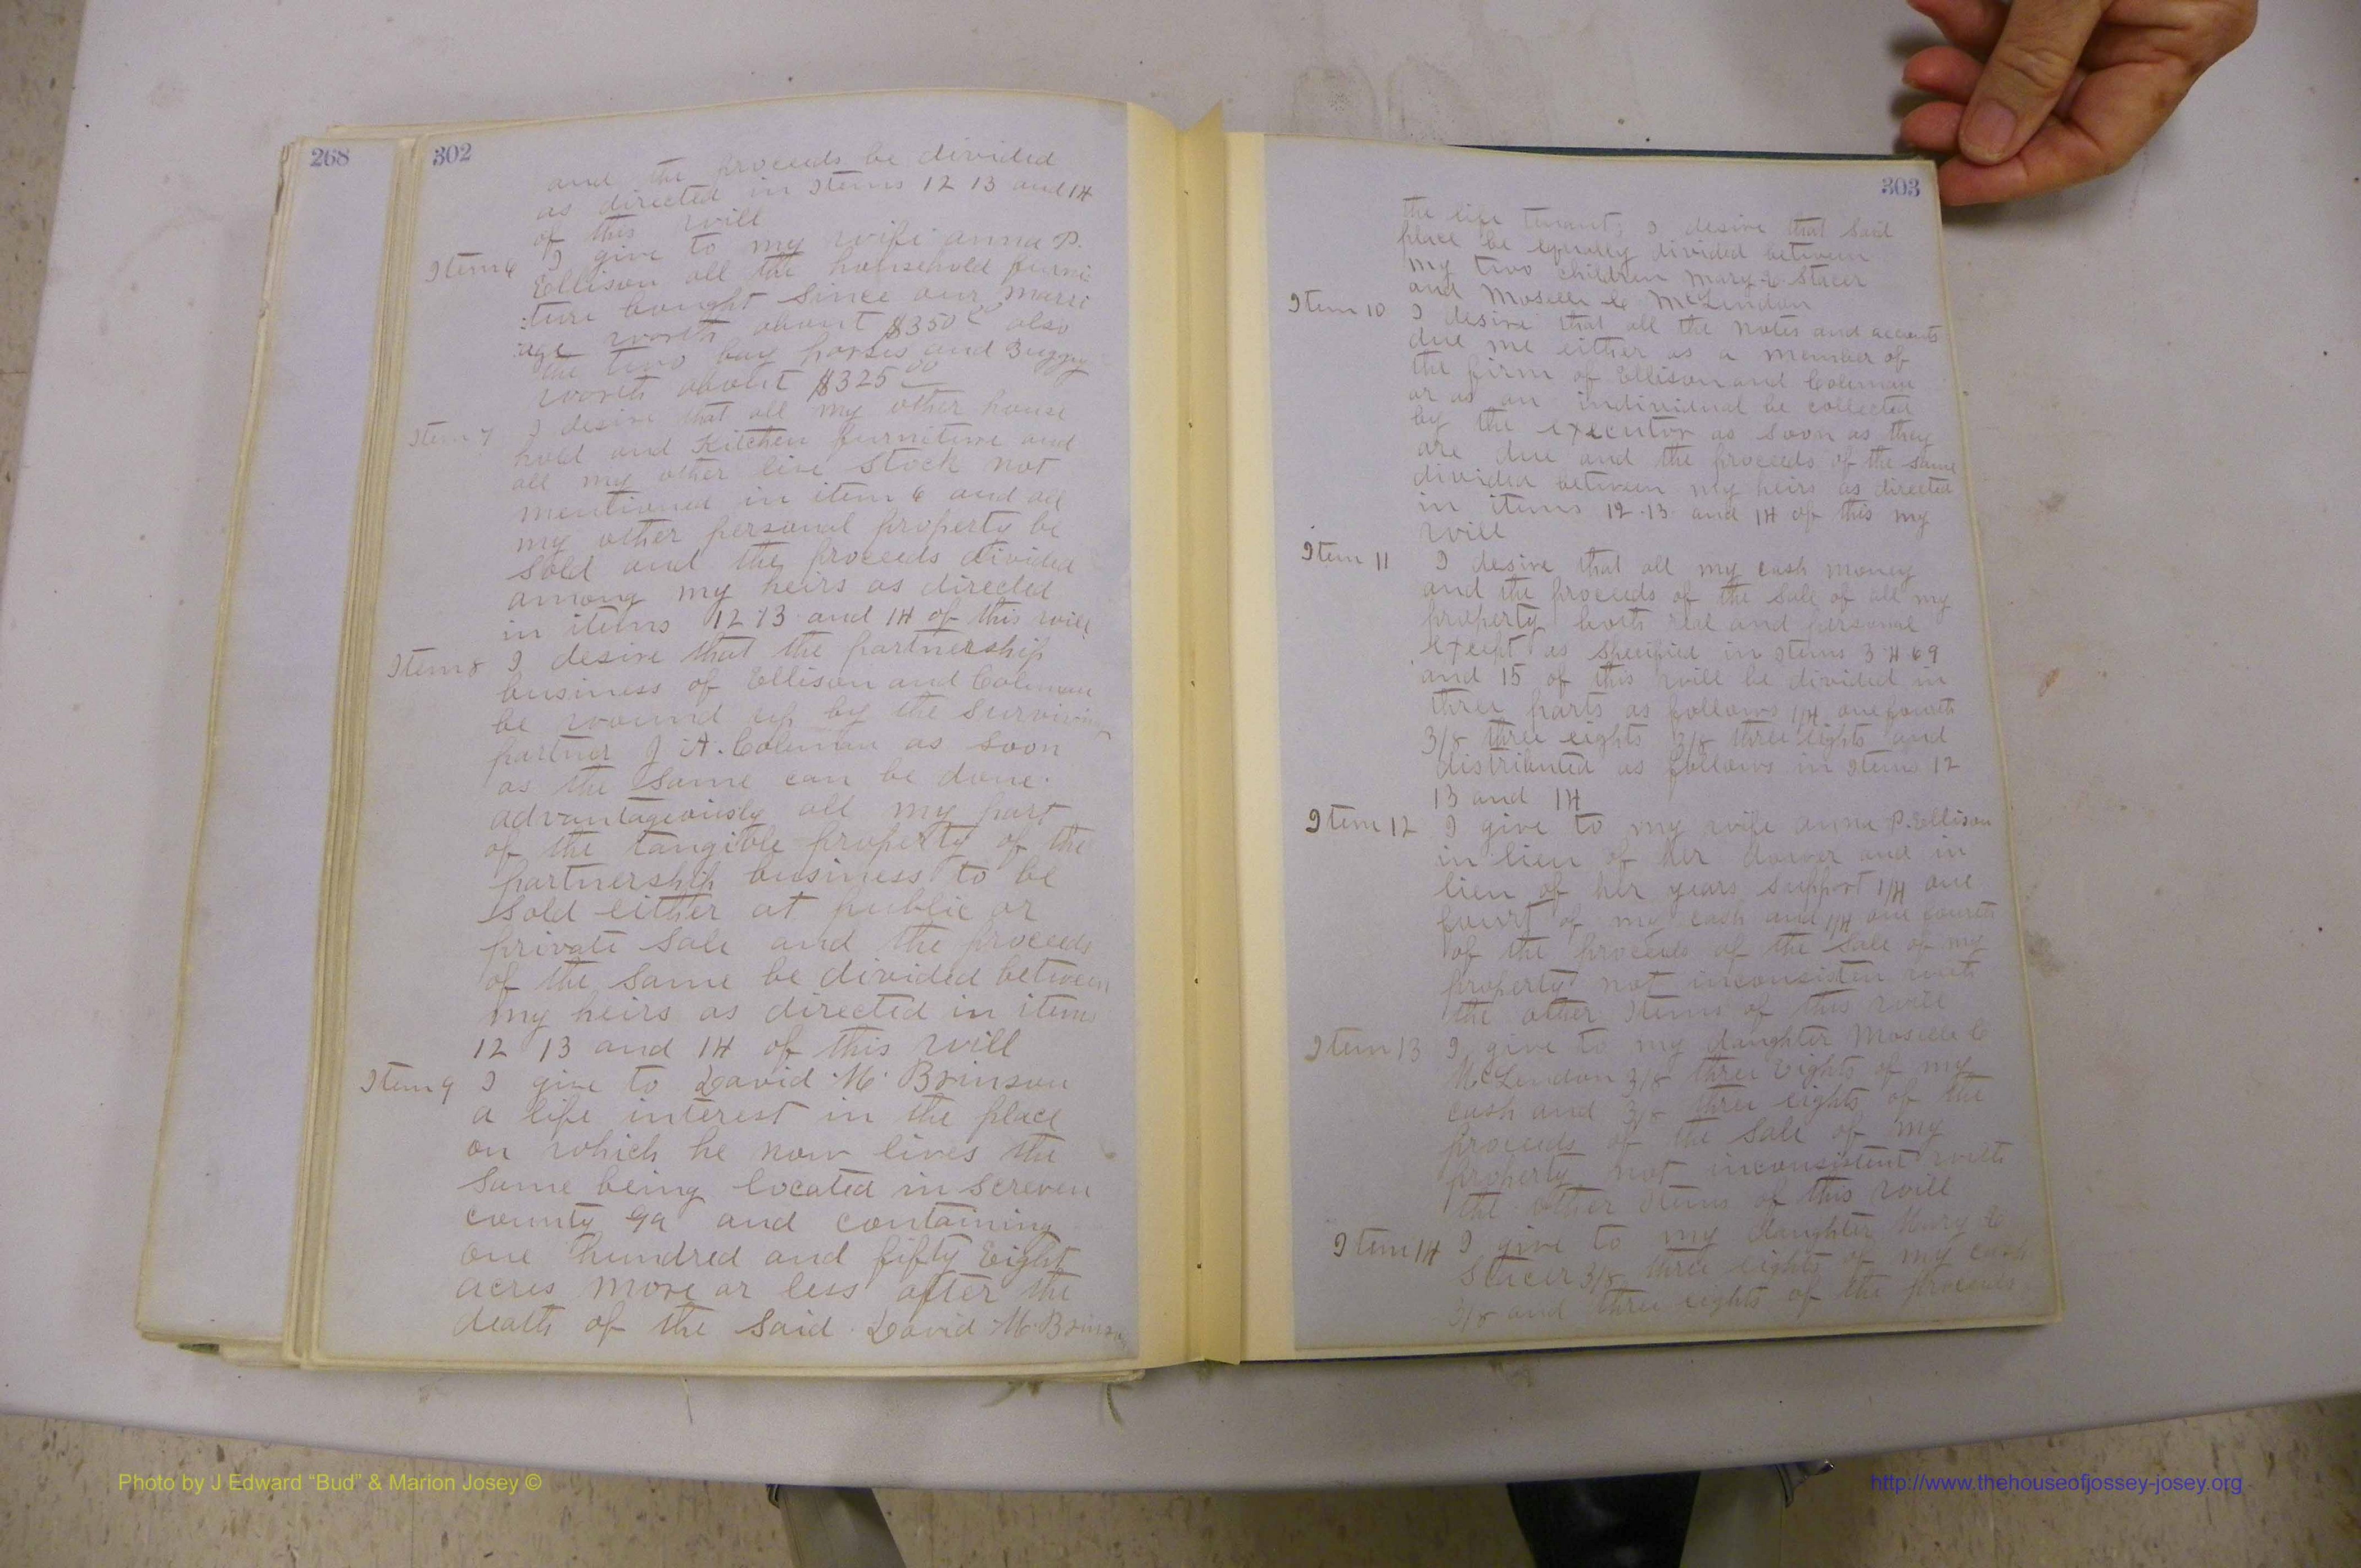 268
302
and the proceeds be divided
as directed in Items 12 13 and 14
of this will
Item 6 I give to my wife Anna P.
Ellison all the household furni
:ture bought since our marri
:age worth about $350 00 also
the two bay horses and Buggy
worth about $325 00
Item 7 I desire that all my other house
hold and Kitchen furniture and
all my other live stock not
mentioned in item 6 and all
my other personal property be
sold and the proceeds divided
among my heirs as directed
in items 12 13 and 14 of this will
Item 8 I desire that the partnership
business of Ellison and Coleman
be wound up by the surviving
partner J. A. Coleman as soon
as the same can be done.
advantageously all my part
of the tangible property of the
partnership business to be
sold either at public or
private sale and the proceeds
of the same be divided between
my heirs as directed in items
12 13 and 14 of this will
Item 9 I give to David M. Brinson
a life interest in the place
on which he now lives the
same being located in Screven
county Ga and containing
one hundred and fifty Eight
acres more or less after the
death of the said David M. Brinson
303
the life tenant, I desire that said
place be equally divided between
my two children Mary E. Stacer
and Moselle C McLendon
Item 10 I desire that all the notes and accounts
due me either as a member of
the firm of Ellison and Coleman
or as an individual be collected
by the executor as soon as they
are due and the proceeds of the same
divided between my heirs as directed
in items 12.13. and 14 of this my
will
Item 11 I desire that all my cash money
and the proceeds of the sale of all my
property both real and personal
except as specified in Items 3.4.6.9
and 15 of this will be divided in
three parts as follows 1/4 one fourth
3/8 three eights 3/8 three eights and
distributed as follows in Items 12
13 and 14
Item 12 I give to my wife Anna P. Ellison
in lieu of her dower and in
lieu of her years support 1/4 one
fourt of my cash and 1/4 one fourth
of the proceeds of the sale of my
property not inconsisten with
the other Items of this will
Item 13 I give to my daughter Moselle C
McLendon 3/8 three Eights of my
cash and 3/8 three eights of the
proceeds of the sale of my
property not inconsistent with
the other Items of this will
Item 14 I give to my daughter Mary E
Stacer 3/8 three eights of my cash
3/8 and three eights of the proceeds
Photo by J Edward “Bud” & Marion Josey ©
http://www.thehouseofjossey-josey.org